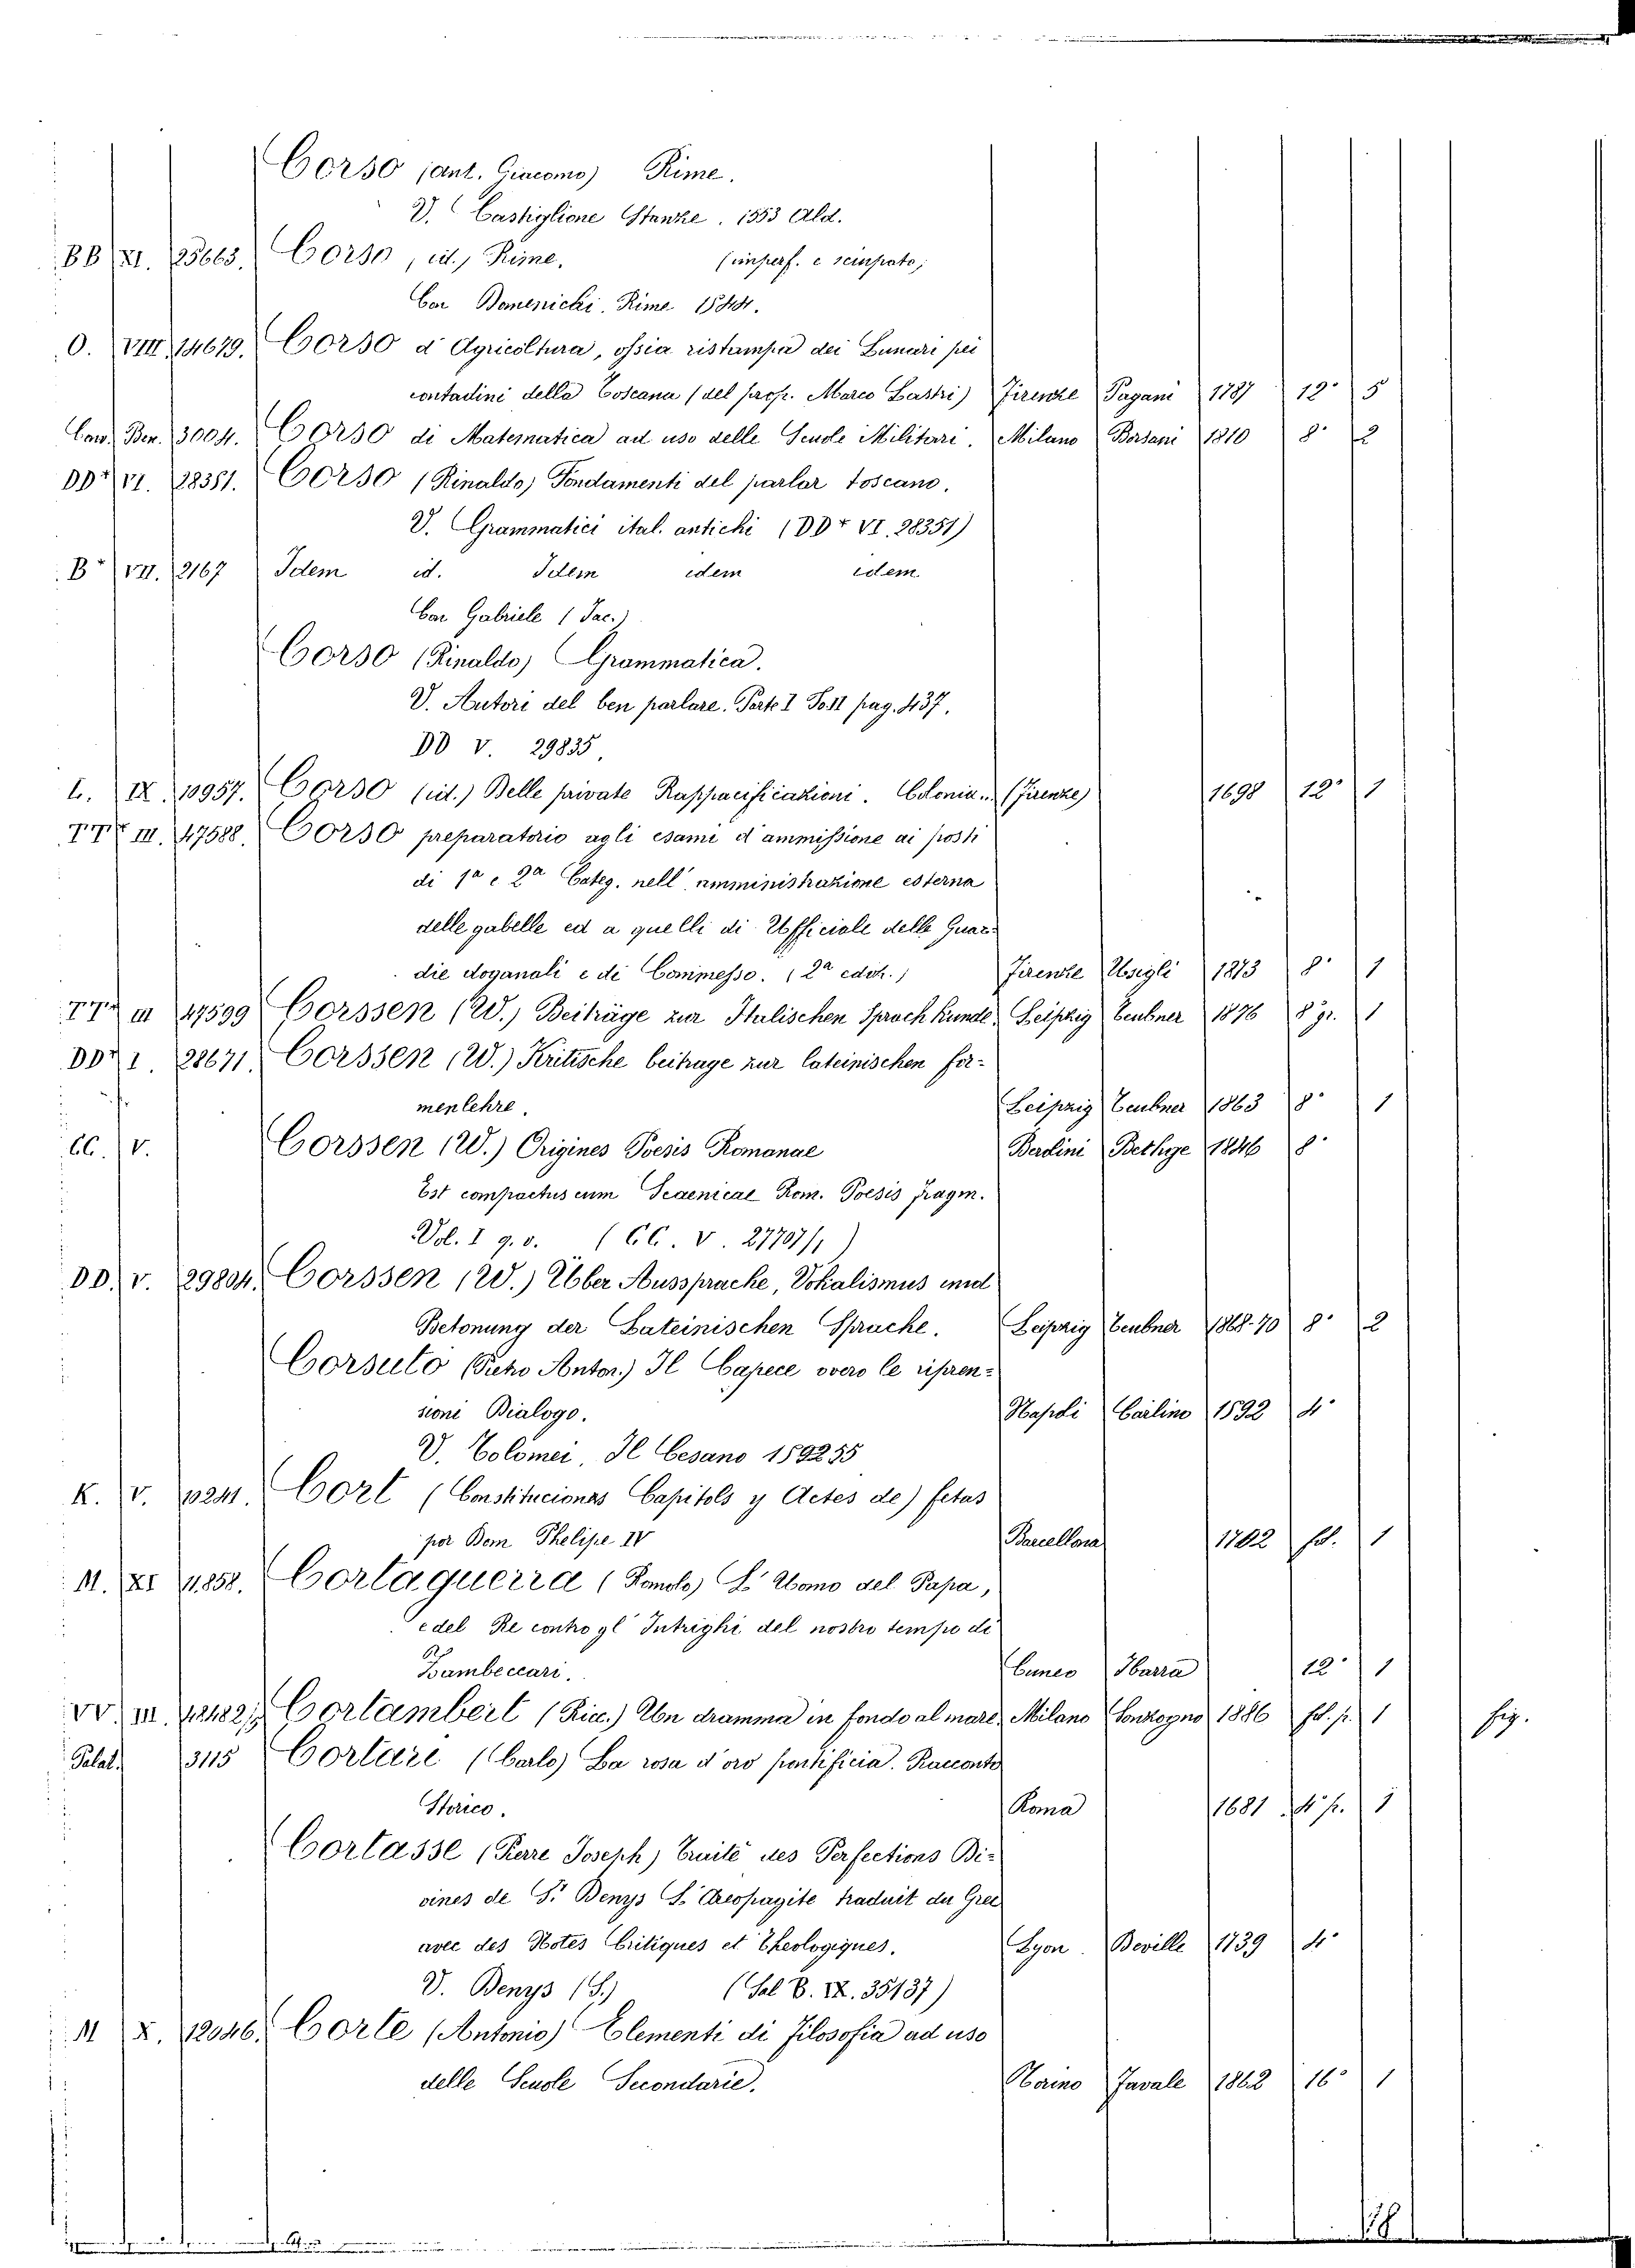 Corso (Ant. Giacomo) Rime.
V. Castiglione Stanze. 1553 Ald.
BB XI. 25663. Corso, id., Rime. (imperf. e sciupato)
Con Domenichi. Rime 1544.
O. VIII 14679. Corso d'Agricoltura, ossia ristampa dei Lunari pei
contadini della Toscana (del prop. Marco Lastri) Firenze Pagani 1787 12° 5
Ben. 3004. Corso di Matematica ad uso delle Scuole Militari. Milano Borsani 1810 8° 2
DD+ VI. 28351. Corso (Rinaldo) Fondamenti del parlar toscano.
V. Grammatici ital. antichi (DD+ VI. 28351)
B+ VII. 2167 Idem id. Idem idem idem
Con Gabriele (Jac.)
Corso (Rinaldo) Grammatica.
V. Autori del ben parlare. Parte I To. II pag. 437.
DD V. 29835.
L. IX. 10957. Corso (id.) Delle private Rappacificazioni. Colonia.. (Firenze) 1698 12° 1
TT+ III. 47588. Corso preparatorio agli esami d'ammissione ai posti
di 1a e 2a Categ. nell'amministrazione esterna
delle gabelle ed a quelli di Ufficiale delle Guar=
die doganali e di Commesso. (2a ediz.) Firenze Usigli 1873 8° 1
TT+ III 47599 Corssen (W.) Beiträge zur Italischen Sprachkunde. Leipzig Teubner 1876 8 gr. 1
DD+ I. 28671. Corssen (W.) Kritische beitrage zur lateinischen for-
menlehre. Leipzig Teubner 1863 8° 1
CC. V. Corssen (W.) Origines Poesis Romanae Berolini Bethge 1846 8°
Est compactus cum Scaenicae Rom. Poesis fragm.
Vol. I q.v. (CC. V. 27707/1)
DD. V. 29804. Corssen (W.) Über Aussprache, Vokalismus und
Betonung der Lateinischen Sprache. Leipzig Teubner 1868-70 8° 2
Corsuto (Pietro Anton.) Il Capece overo le ripren=
sioni Dialogo. Napoli Carlino 1592 4°
V. Tolomei, Il Cesano 1592 55
K. V. 10241. Cort (Constitucions Capitols y Actes de) fetas
por Dom Phelipe IV Barcellona 1702 fol. 1
M. XI 11.858. Cortaguerra (Panolo) L'Uomo del Papa,
e del Re contro gl'Intrighi del nostro tempo di
Zambeccari. Cuneo 12° 1
VV. III. Cortambert (Ricc.) Un dramma in fondo al mare. Milano Sonzogno 1886 fol. p. 1 fig.
Palat. 3115 Cortare (Carlo) La rosa d'oro pontificia. Racconto
Storico. Roma 1681 4° p. 1
Cortasse (Pierre Joseph) Traité des Perfections Di-
vines de St. Denys L'Areopagite traduit du Grec
avec des Notes Critiques et Theologiques. Lyon. Deville 1739 4°
V. Denys (S.) (Sal B. IX. 35137)
M X. 12046. Corte (Antonio) Elementi di filosofia ad uso
delle Scuole Secondarie. Torino Favale 1862 16° 1